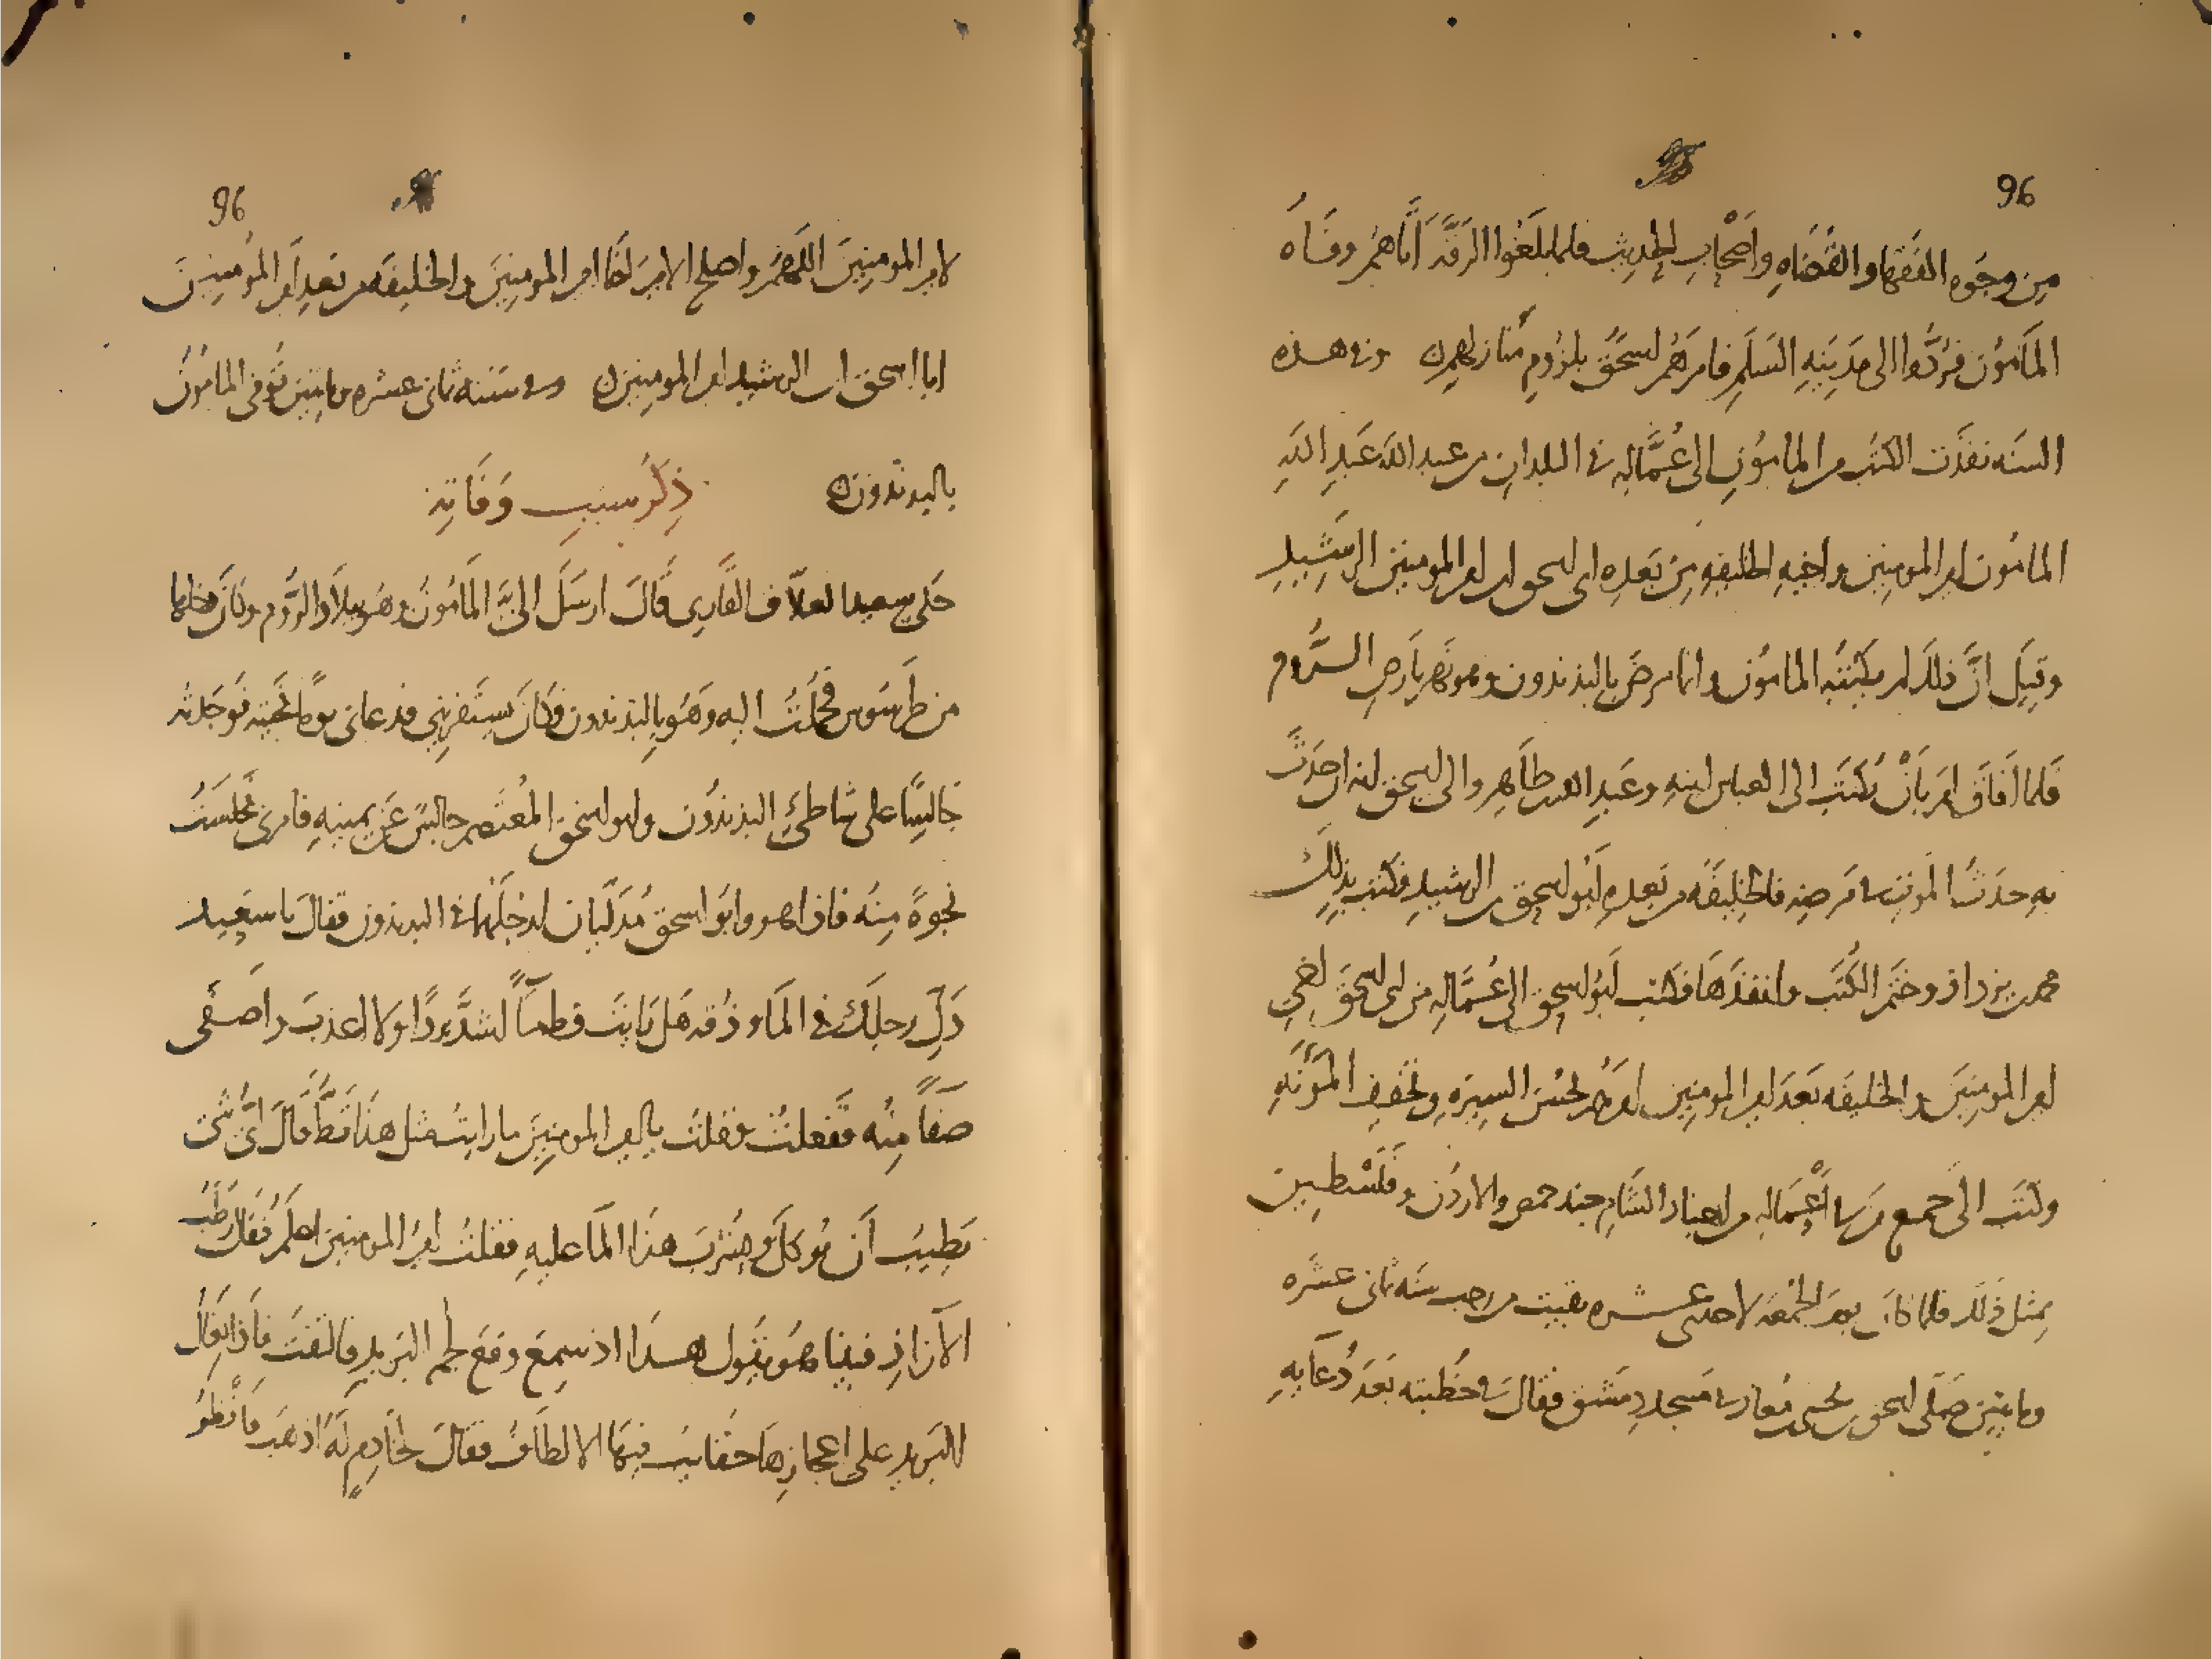 96
من وجوه الفقها والقضاه واصحاب الحديث فلما بلغوا الرقه اتاهم وفاه
المامون فردوا الى مدينه السلم فامرهم اسحق بلزوم منازلهم وفي هذه
السنه نفذت الكتب من المامون الى عماله في البلدان من عبد الله عبد الله
المامون امير المومنين واخيه الخليفه من بعده ابى اسحق ابن امير المومنين الرشيد
وقيل ان ذلك لم يكتبه المامون وانما مرض بالبذندون وهو نهر بارض الروم
فلما افاق امر بان يكتب الى العباس ابنه وعبد الله بن طاهر والى اسحق انه ان حدث
به حدث الموت في مرضه فالخليفه من بعده ابو اسحق بن الرشيد فكتب بذلك
محمد بن يزداذ وختم الكتب وانفذها فكتب ابو اسحق الى عماله من ابى اسحق اخي
امير المومنين والخليفه بعد امير المومنين امرهم بحسن السيره وتخفيف المؤنه
وكتب الى جميع من في اعماله من اجناد الشام جند حمص والاردن وفلسطين
بمثل ذلك فلما كان يوم الجمعه لاحدى عشره بقيت من رجب سنه ثمانى عشره
ومايتين صلى اسحق بن يحيى بن معاذ في مسجد دمشق فقال في خطبته بعد دعايه
96
لامير المومنين اللهم واصلح الامير اخا امير المومنين والخليفه من بعد امير المومنين
ابا اسحق ابن الرشيد امير المومنين وفي سنه ثمانى عشره ومايتين توفى المامون
بالبذندون ذكر سبب وفاته
حكى سعيد العلاف القارى قال ارسل الى المامون وهو ببلاد الروم وكان دخلها
من طرسوس فحملت اليه وهو بالبذندون فكان يستقرئني فدعانى يوما فجيته فوجدته
جالسا على شاطئ البذندون وابو اسحق المعتصم جالس عن يمينه فامرنى فجلست
نحوه منه فاذا هو وابو اسحق مدليان ارجلهما في البذندون فقال يا سعيد
دل رجلك في الماء وذقه هل رايت قط ماء اشد بردا ولا اعذب واصفى
صفاء منه ففعلت وقلت يا امير المومنين ما رايت مثل هذا قط قال اى شى
يطيب ان يوكل ويشرب هذا الماء عليه فقلت امير المومنين اعلم فقال رطب
الازاذ فبينا هو يقول هذا اذ سمع وقع لجم البريد فالتفت فاذا بغال
البريد على اعجازها حقايب فيها الالطاف فقال لخادم له اذهب فانظر